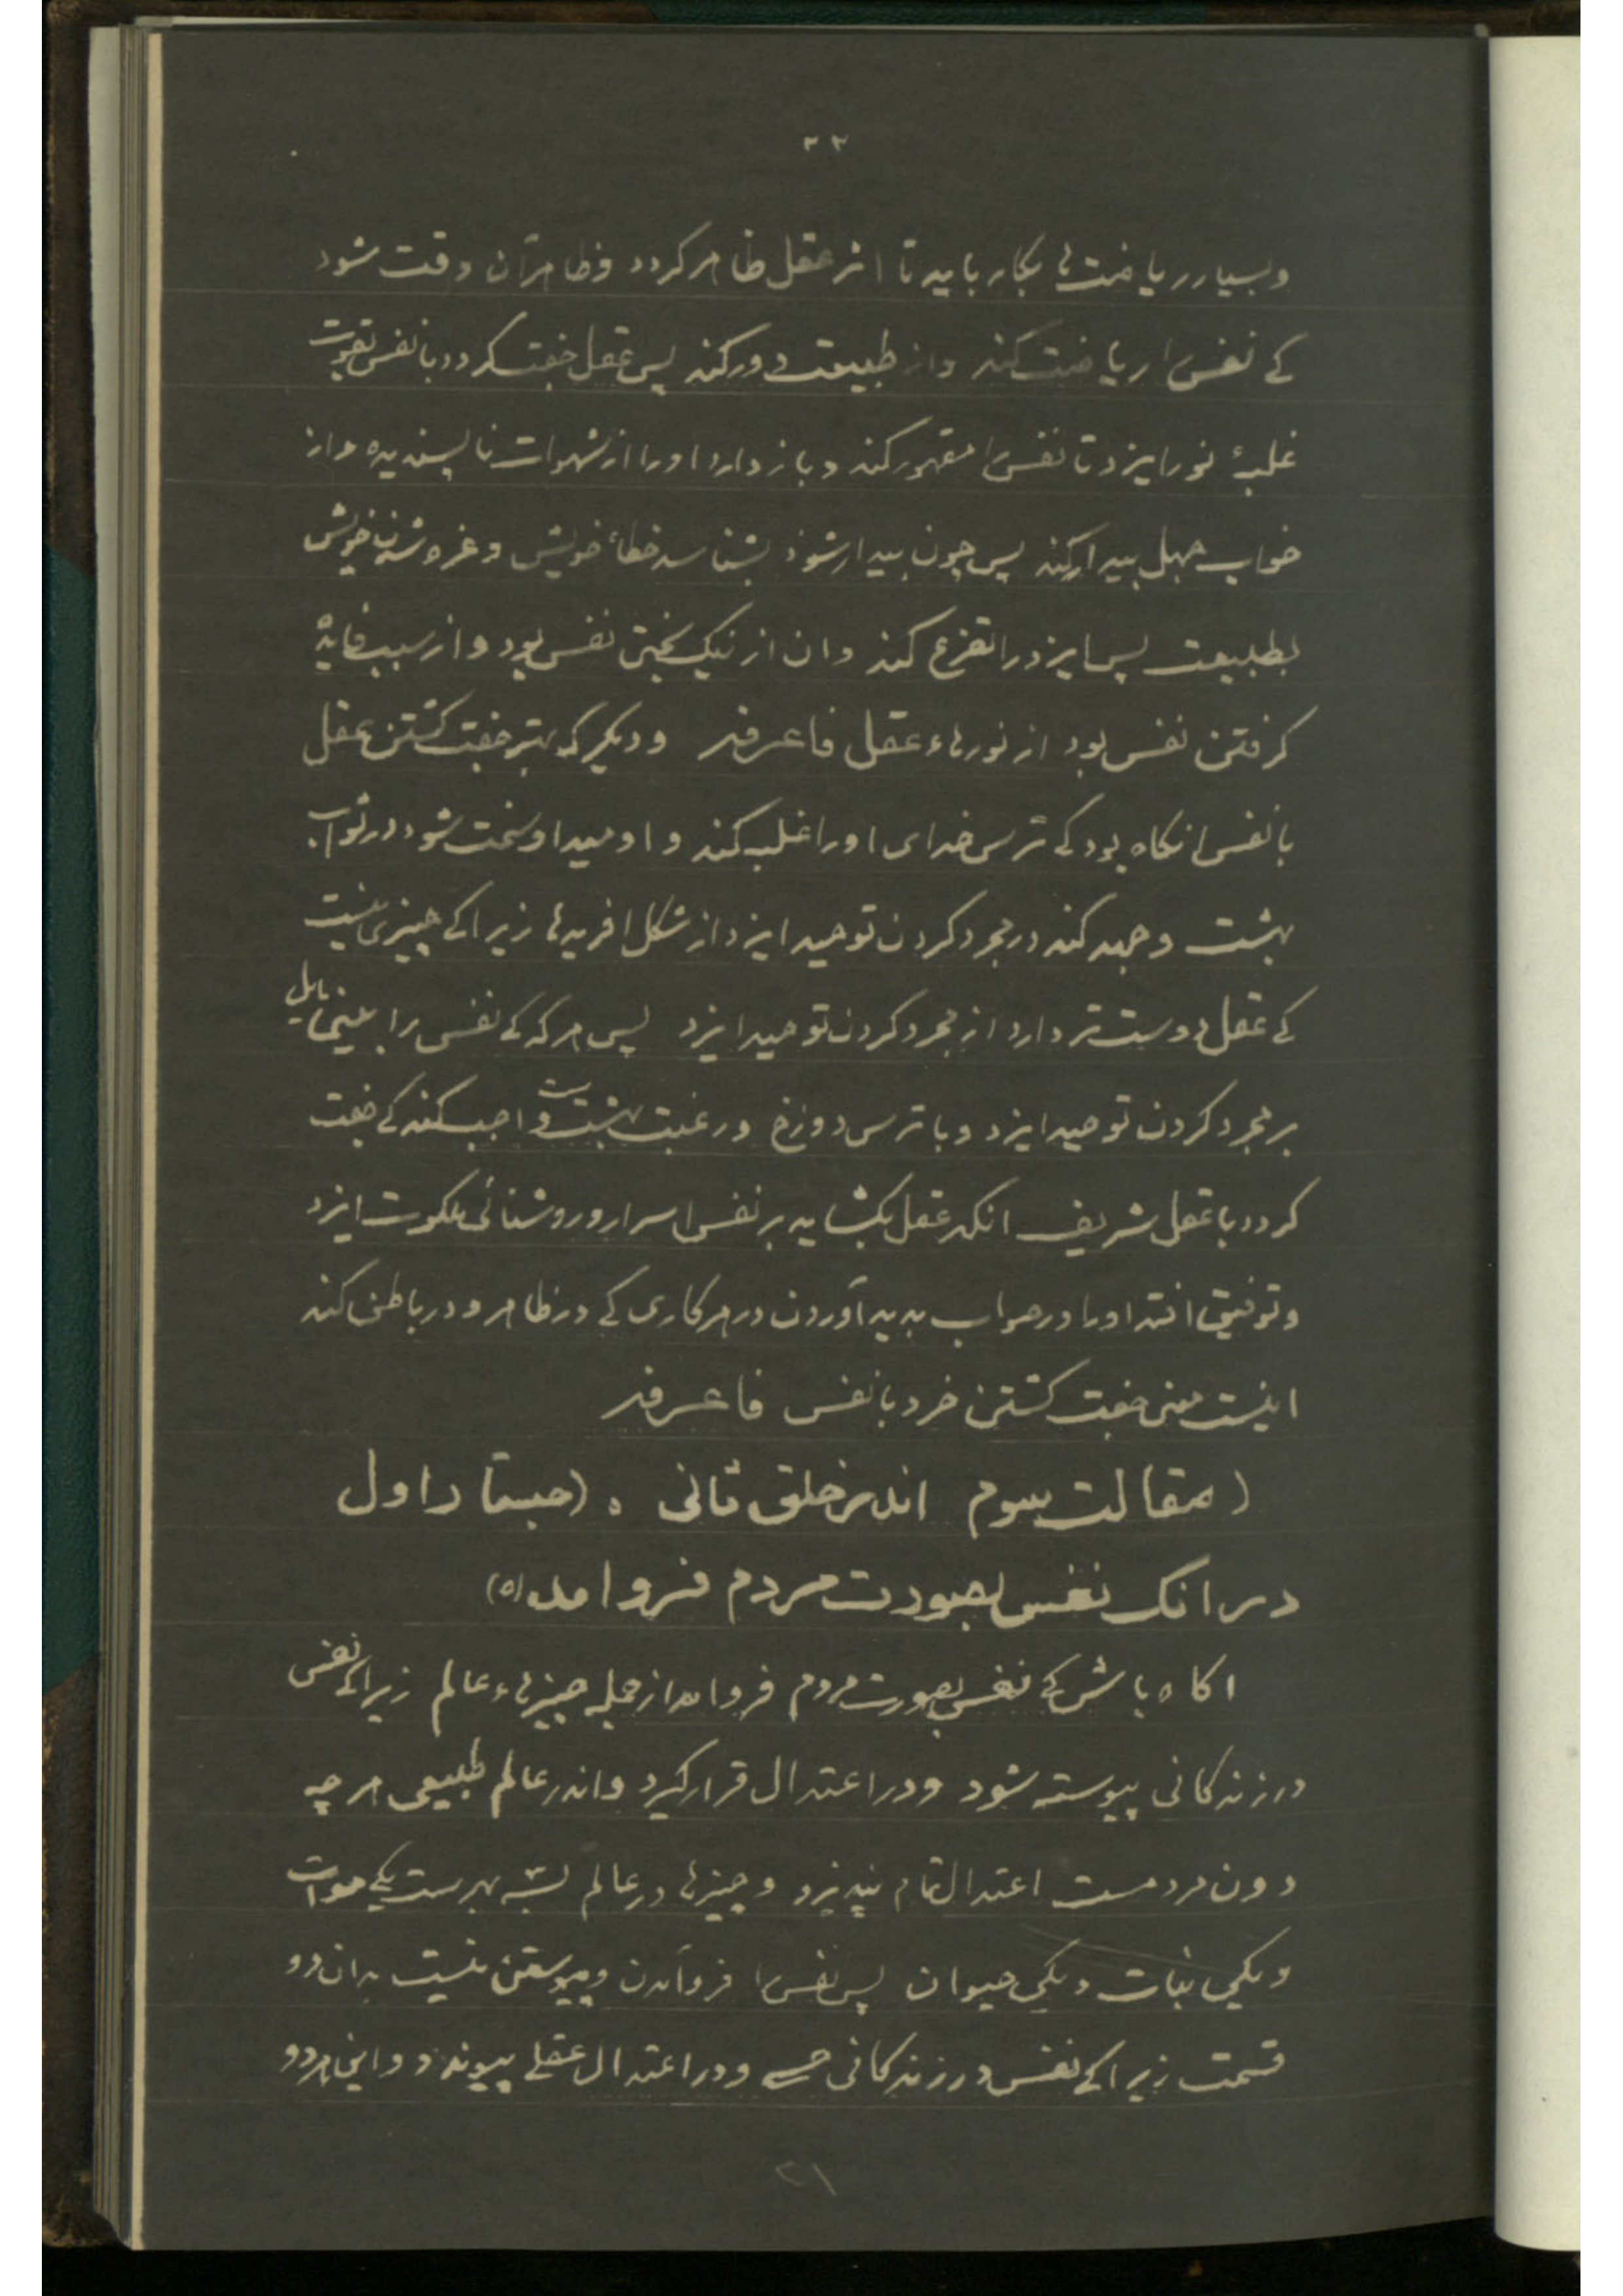 ۳۲
وبسیار ریاضت ها بکار باید تا اثر عقل ظاهر کردد وظاهر آن وقت شود
کے نفس را ریاضت کند واز طبیعت دور کند پس عقل جفت کردد با نفس بقوت
غلبهٔ نور ایزد تا نفس را مقهور کند وباز دارد اورا از شهوات ناپسندیده واز
خواب جهل بیدار کند پس چون بیدار شود بشناسد خطاء خویش وغره شدن خویش
بطبیعت پس ایزد را تضرع کند وان از نیک بختی نفس بود واز سبب فایدهٔ
کرفتن نفس بود از نورهاء عقل فاعرفه ودیکر که بهتر جفت کشتن عقل
با نفس انکاه بود کے ترس خدای اورا غلبه کند واومید او سخت شود در ثواب
بهشت وجهد کند در مجرد کردن توحید ایزد از شکل افریدها زیرا کے چیزی نیست
کے عقل دوست تر دارد از مجرد کردن توحید ایزد پس هرکه کے نفس را بینی مایل
بر مجرد کردن توحید ایزد وبا ترس دوزخ ورغبت بهشت واجب کند کے جفت
کردد با عقل شریف انکه عقل بکشاید بر نفس اسرار وروشنائی ملکوت ایزد
وتوفیق افتد اورا در صواب بدید آوردن در هر کاری کے در ظاهر ودر باطن کند
اینست معنی جفت کشتن خرد با نفس فاعرفه
(مقالت سوم اندر خلق ثانی ه (جستار اول
در انک نفس بصورت مردم فروامد(ه)
اکاه باش کے نفس بصورت مردم فروامد از جمله چیزهاء عالم زیرا کے نفس
در زندکانی پیوسته شود ودر اعتدال قرار کیرد واندر عالم طبیعی هرچه
دون مردمست اعتدال تمام نپذیرد وچیزها در عالم بسه بهرست یکے موات
ویکی نبات ویکی حیوان پس نفس را فروآمدن وپیوستن نیست بدان دو
قسمت زیرا کے نفس در زندکانی حسے ودر اعتدال عقلے پیوندد واین هردو
۲۱